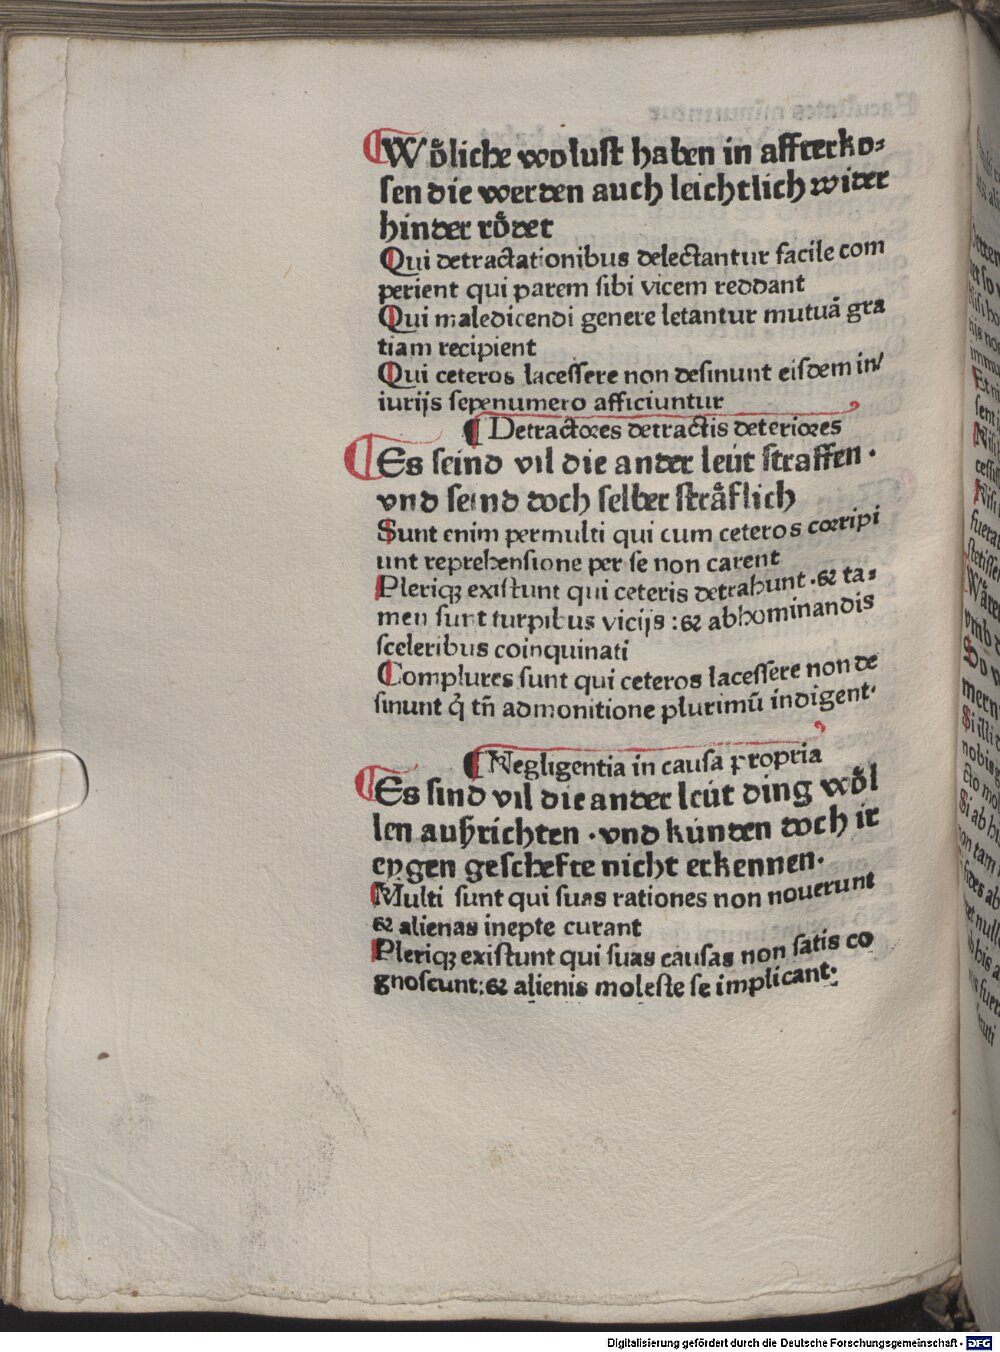 ¶Woͤliche wolust haben in affterko⸗
sen die werden auch leichtlich wider
hinder roͤdet
Qui detractationibus delectantur facile com
perient qui parem sibi vicem reddant
Qui maledicendi genere letantur mutuā gra
tiam recipient
Qui ceteros lacessere non desinunt eisdem in/
iurijs sepenumero afficiuntur
¶ Detractores detractis deteriores
¶Es seind vil die ander leüt straffen ·
vnd seind doch selber straͤflich
Sunt enim permulti qui cum ceteros corripi
unt reprehensione per se non carent
Pleriqꝫ existunt qui ceteris detrahunt · & ta⸗
men sunt turpibus vicijs : & abhominandis
sceleribus coinquinati
Complures sunt qui ceteros lacessere non de
sinunt q̇ tn̄ admonitione plurimū indigent·
¶ Negligentia in causa propria
¶Es sind vil die ander leüt ding woͤl
len auſzrichten · vnd künden doch ir
eygen geschefte nicht erkennen·
Multi sunt qui suas rationes non nouerunt
& alienas inepte curant
Pleriqꝫ existunt qui suas causas non satis co
gnoscunt: & alienis moleste se implicant:
Digitalisierung gefördert durch die Deutsche Forschungsgemeinschaft - DFG